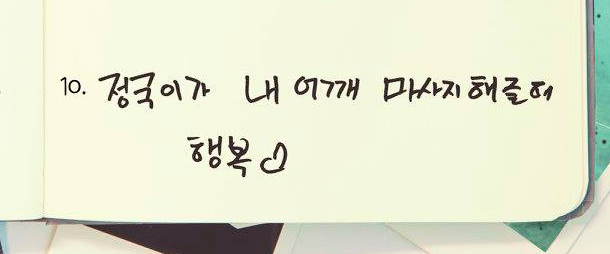 10. 정국이가 내 어깨 마사지해줄 때
행복♡